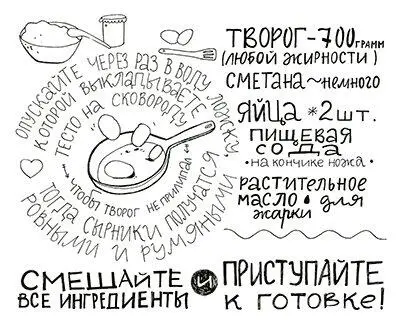 ОПУСКАЙТЕ ЧЕРЕЗ РАЗ В ВОДУ ЛОЖКУ,
КОТОРОЙ ВЫКЛАДЫВАЕТЕ
ТЕСТО НА СКОВОРОДУ
ЧТОБЫ ТВОРОГ НЕ ПРИЛИПАЛ
ТОГДА СЫРНИКИ ПОЛУЧАТСЯ
РОВНЫМИ И РУМЯНЫМИ
ТВОРОГ-700 ГРАММ
(ЛЮБОЙ ЖИРНОСТИ)
СМЕТАНА~НЕМНОГО
ЯЙЦА *2ШТ.
ПИЩЕВАЯ
СОДА
•НА КОНЧИКЕ НОЖА•
РАСТИТЕЛЬНОЕ
МАСЛО • ДЛЯ
ЖАРКИ
СМЕШАЙТЕ
ВСЕ ИНГРЕДИЕНТЫ
И
ПРИСТУПАЙТЕ
К ГОТОВКЕ!